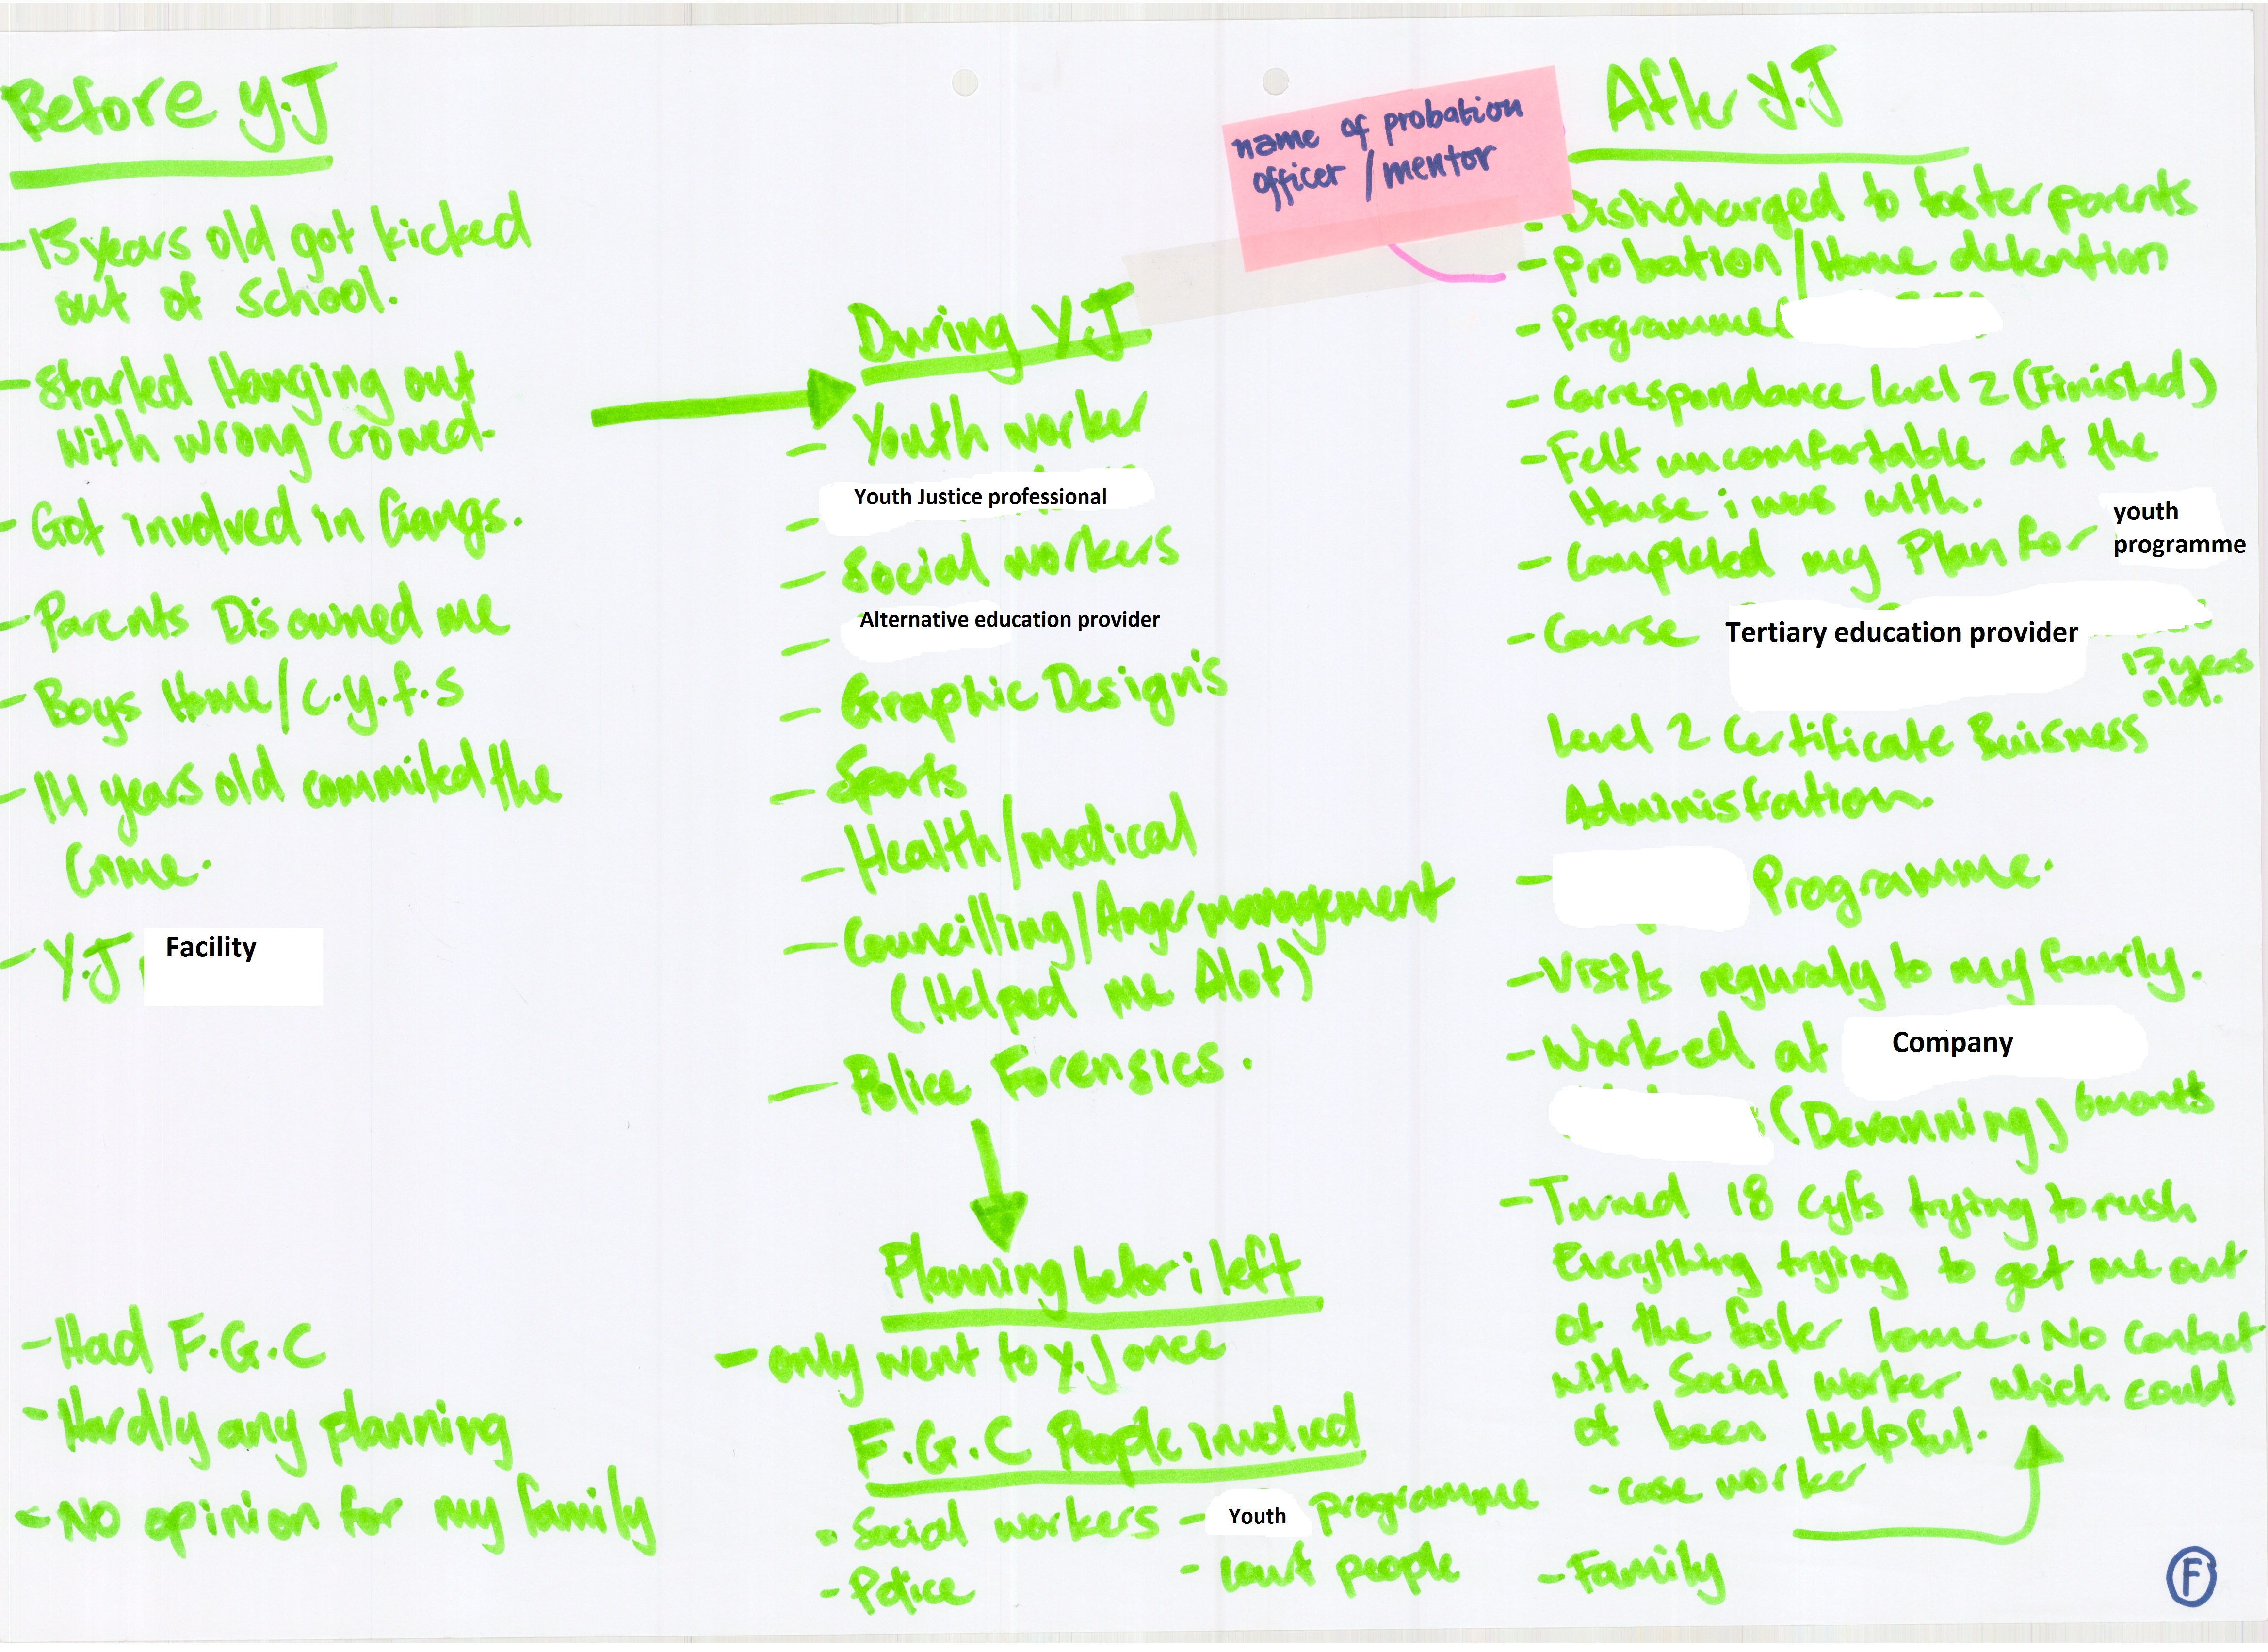 Before Y.J
- 13 years old got kicked
out of school.
- Started Hanging out
With wrong crowed.
- Got involved in Gangs.
- Parents Disowned me
- Boys Home/c.y.f.s
- 14 years old commited the
Crime.
- Y.J Facility
- Had F.G.C
- Hardly any planning
- No opinion for my family
During Y.J
- Youth worker
- Youth Justice professional
- Social workers
- Alternative education provider
- Graphic Design's
- Sports
- Health/medical
- Councilling/Anger management
(Helped me Alot)
- Police Forensics.
Planning befor i left
- only went to Y.J once
F.G.C People involved
- Social workers - Youth programme - case worker
- Police - Court people - Family
name of probation
officer / mentor
After Y.J
- Dishcharged to foster parents
- Probation/Home detention
- Programme(
- Correspondance Level 2 (Finished)
- Felt uncomfortable at the
House i was with.
- Completed my Plan for youth
programme
- Course Tertiary education provider
17 years
old.
Level 2 Certificate Buisness
Administration.
- Programme.
- Visits reguraly to my family.
- Worked at Company
(Devanning) 6 monts
- Turned 18 cyfs trying to rush
Everything trying to get me out
of the foster home. No contact
with Social worker which could
of been Helpful.
F